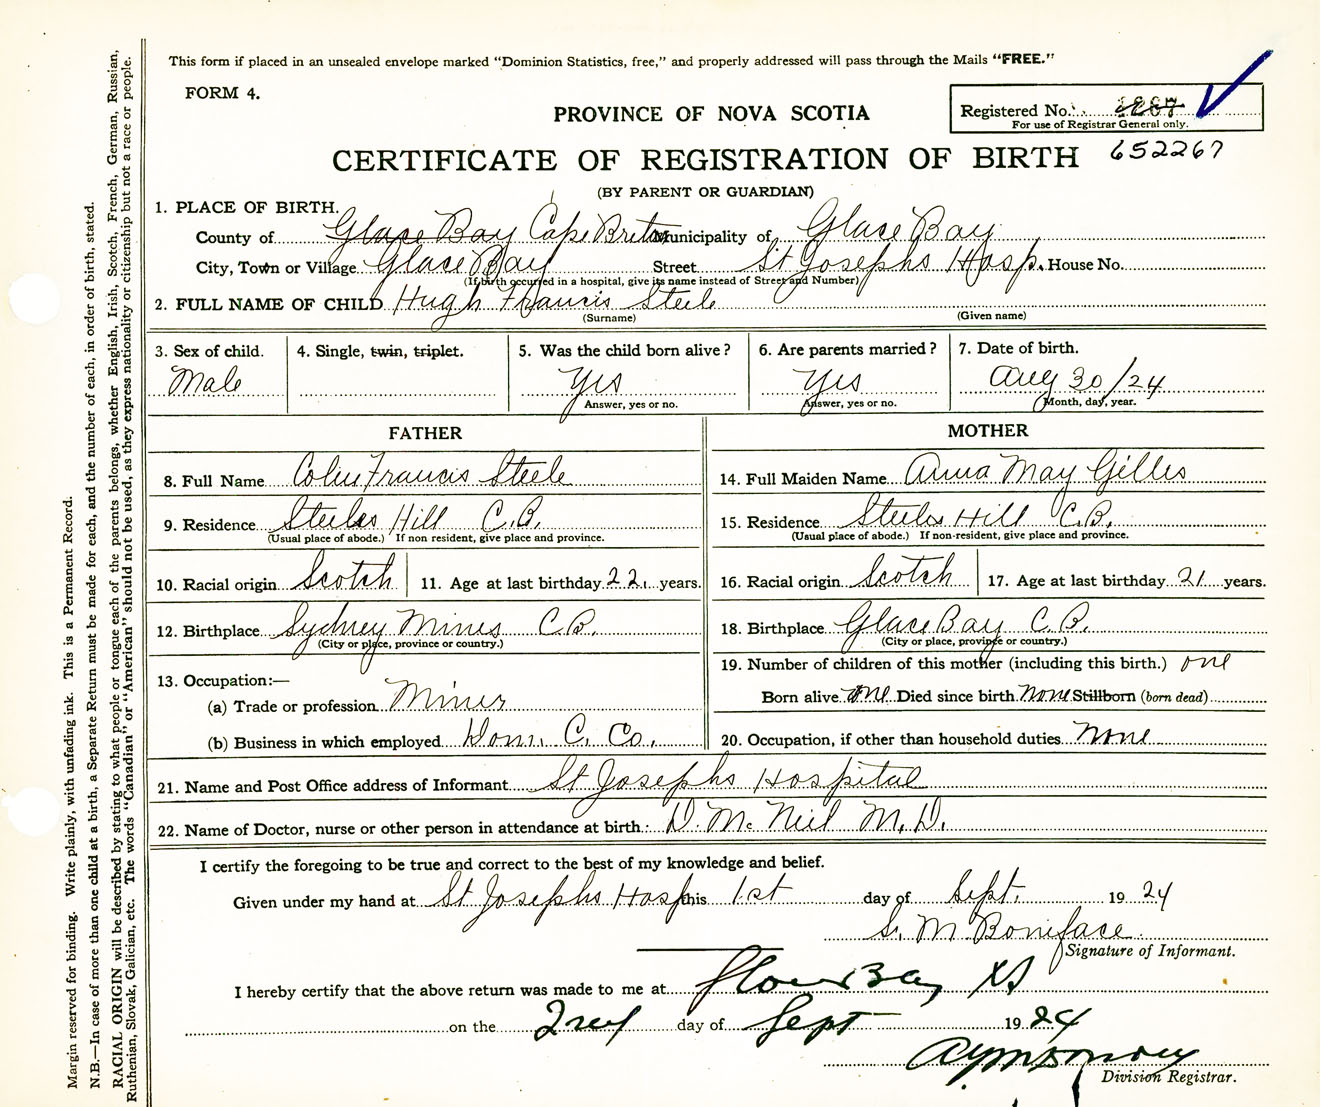 This form if placed in an unsealed envelope marked "Dominion Statistics, free," and properly addressed will pass through the Mails "FREE."
FORM 4.
PROVINCE OF NOVA SCOTIA
Registered No.
For use of Registrar General only.
652267
CERTIFICATE OF REGISTRATION OF BIRTH
(BY PARENT OR GUARDIAN)
1. PLACE OF BIRTH.
County of Glace Bay Cape Breton Municipality of Glace Bay
City, Town or Village Glace Bay Street St Josephs Hosp. House No.
(If birth occurred in a hospital, give its name instead of Street and Number)
2. FULL NAME OF CHILD Hugh Francis Steele
(Surname) (Given name)
3. Sex of child. 4. Single, twin, triplet. 5. Was the child born alive? 6. Are parents married? 7. Date of birth.
Male Yes Yes Aug 30/24
Answer, yes or no. Answer, yes or no. Month, day, year.
FATHER MOTHER
8. Full Name Colin Francis Steele 14. Full Maiden Name Anna May Gillis
9. Residence Steeles Hill C.B. 15. Residence Steeles Hill C.B.
(Usual place of abode.) If non resident, give place and province. (Usual place of abode.) If non-resident, give place and province.
10. Racial origin Scotch 11. Age at last birthday 22 years. 16. Racial origin Scotch 17. Age at last birthday 21 years.
12. Birthplace Sydney Mines C.B. 18. Birthplace Glace Bay C.B.
(City or place, province or country.) (City or place, province or country.)
13. Occupation:— 19. Number of children of this mother (including this birth.) one
(a) Trade or profession Miner Born alive one Died since birth none Stillborn (born dead)
(b) Business in which employed Dom. C. Co. 20. Occupation, if other than household duties none
21. Name and Post Office address of Informant St Josephs Hospital
22. Name of Doctor, nurse or other person in attendance at birth: D. McNeil M.D.
I certify the foregoing to be true and correct to the best of my knowledge and belief.
Given under my hand at St Josephs Hosp this 1st day of Sept. 1924
Sr. M Boniface
Signature of Informant.
I hereby certify that the above return was made to me at Glace Bay NS
on the 2nd day of Sept 1924
Division Registrar.
Margin reserved for binding. Write plainly, with unfading ink. This is a Permanent Record.
N.B.—In case of more than one child at a birth, a Separate Return must be made for each, and the number of each, in order of birth, stated.
RACIAL ORIGIN will be described by stating to what people or tongue each of the parents belongs, whether English, Irish, Scotch, French, German, Russian,
Ruthenian, Slovak, Galician, etc. The words "Canadian" or "American" should not be used, as they express nationality or citizenship but not a race or people.